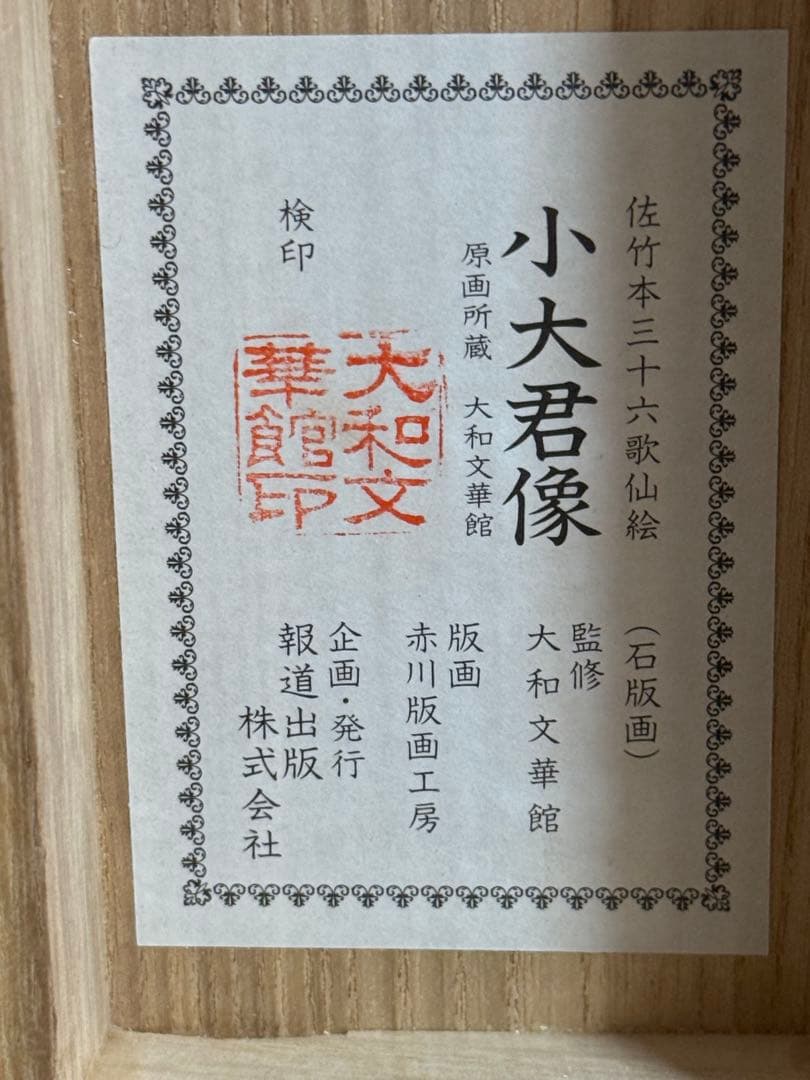 佐竹本三十六歌仙絵（石版画）
小大君像
原画所蔵　大和文華館
監修
大和文華館
版画
赤川版画工房
企画・発行
報道出版
株式会社
検印
大和文
華館印